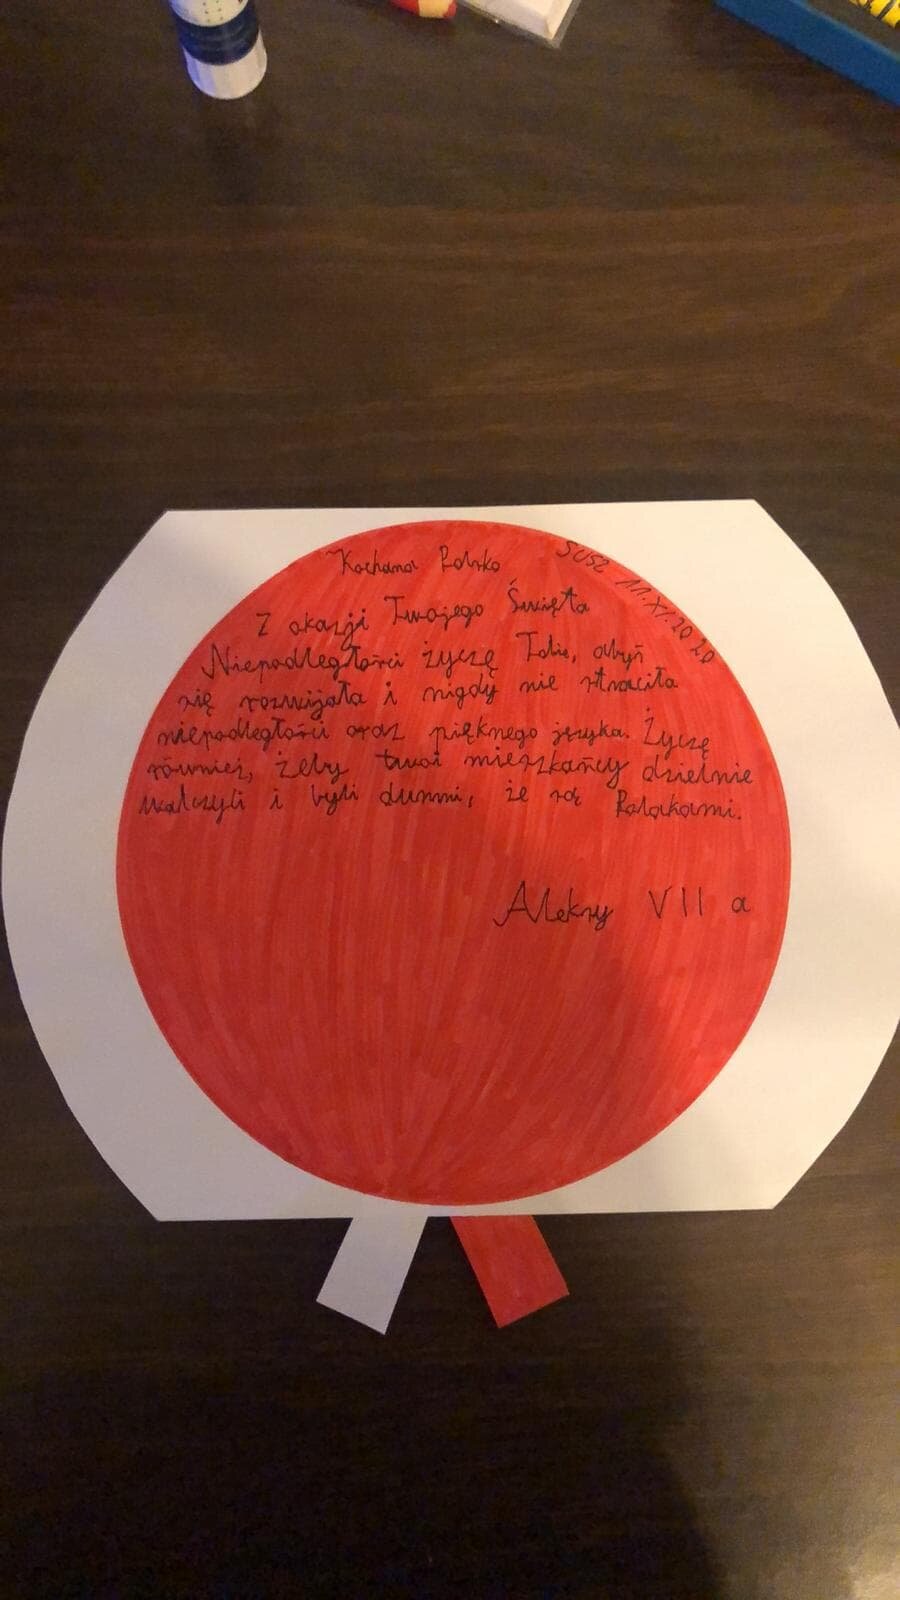 Kochana Polsko
SUSZ 11.XI.2020
Z okazji Twojego Święta
Niepodległości życzę Tobie, abyś
się rozwijała i nigdy nie straciła
niepodległości oraz pięknego języka. Życzę
również, żeby twoi mieszkańcy dzielnie
walczyli i byli dumni, że są Polakami.
Aleksy VII a